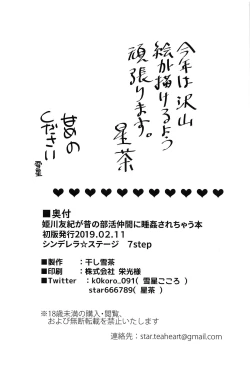 今年は沢山
絵が描けるよう
頑張ります。
星茶
甘めの
ください
雪星
■奥付
姫川友紀が昔の部活仲間に睡姦されちゃう本
初版発行2019.02.11
シンデレラ☆ステージ 7step
■製作 :干し雪茶
■印刷 :株式会社 栄光様
■Twitter :k0koro_091( 雪星こころ )
star666789( 星茶 )
※18歳未満の購入・閲覧、
および無断転載を禁止いたします
連絡先:star.teaheart@gmail.com